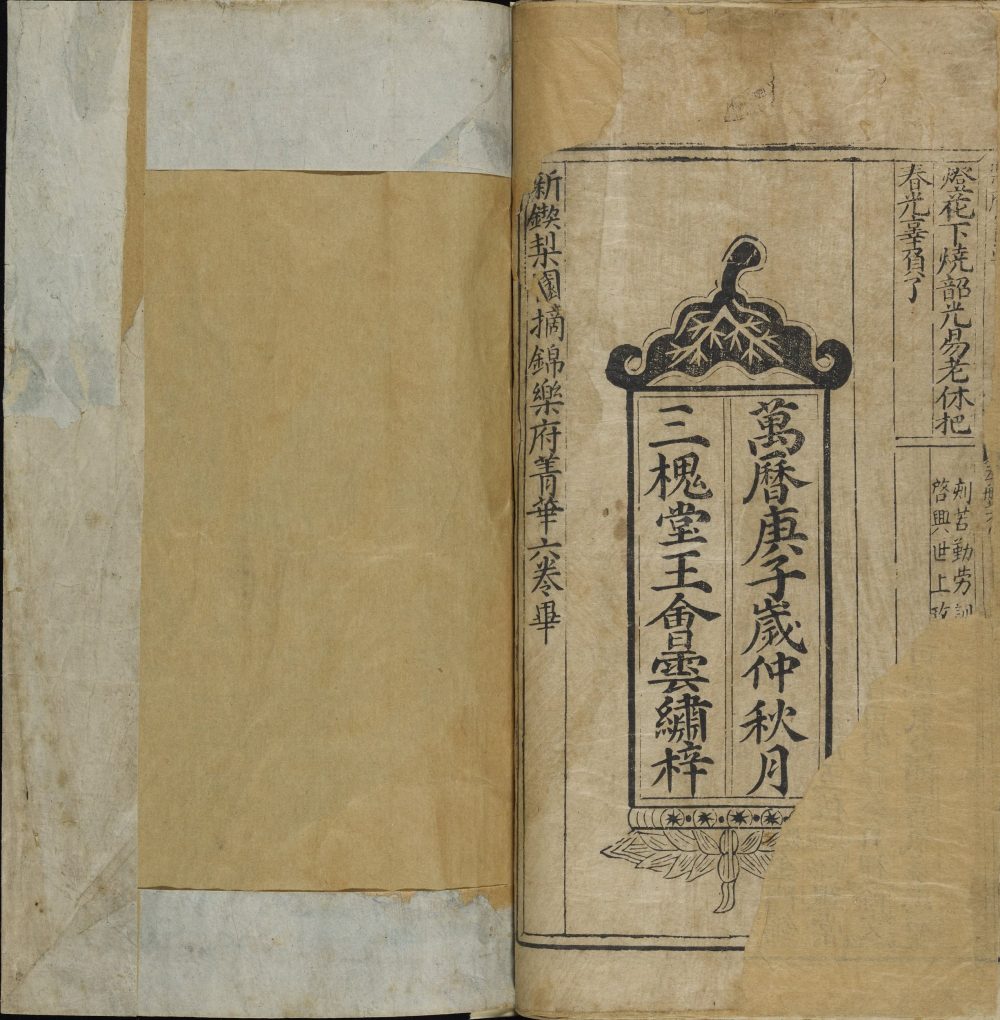 燈花下燒韶光易老休把
春光辜負了
刺苦勤劳訓
啓興世上
萬曆庚子歲仲秋月
三槐堂王會雲繡梓
新鍥梨園摘錦樂府菁華六卷畢